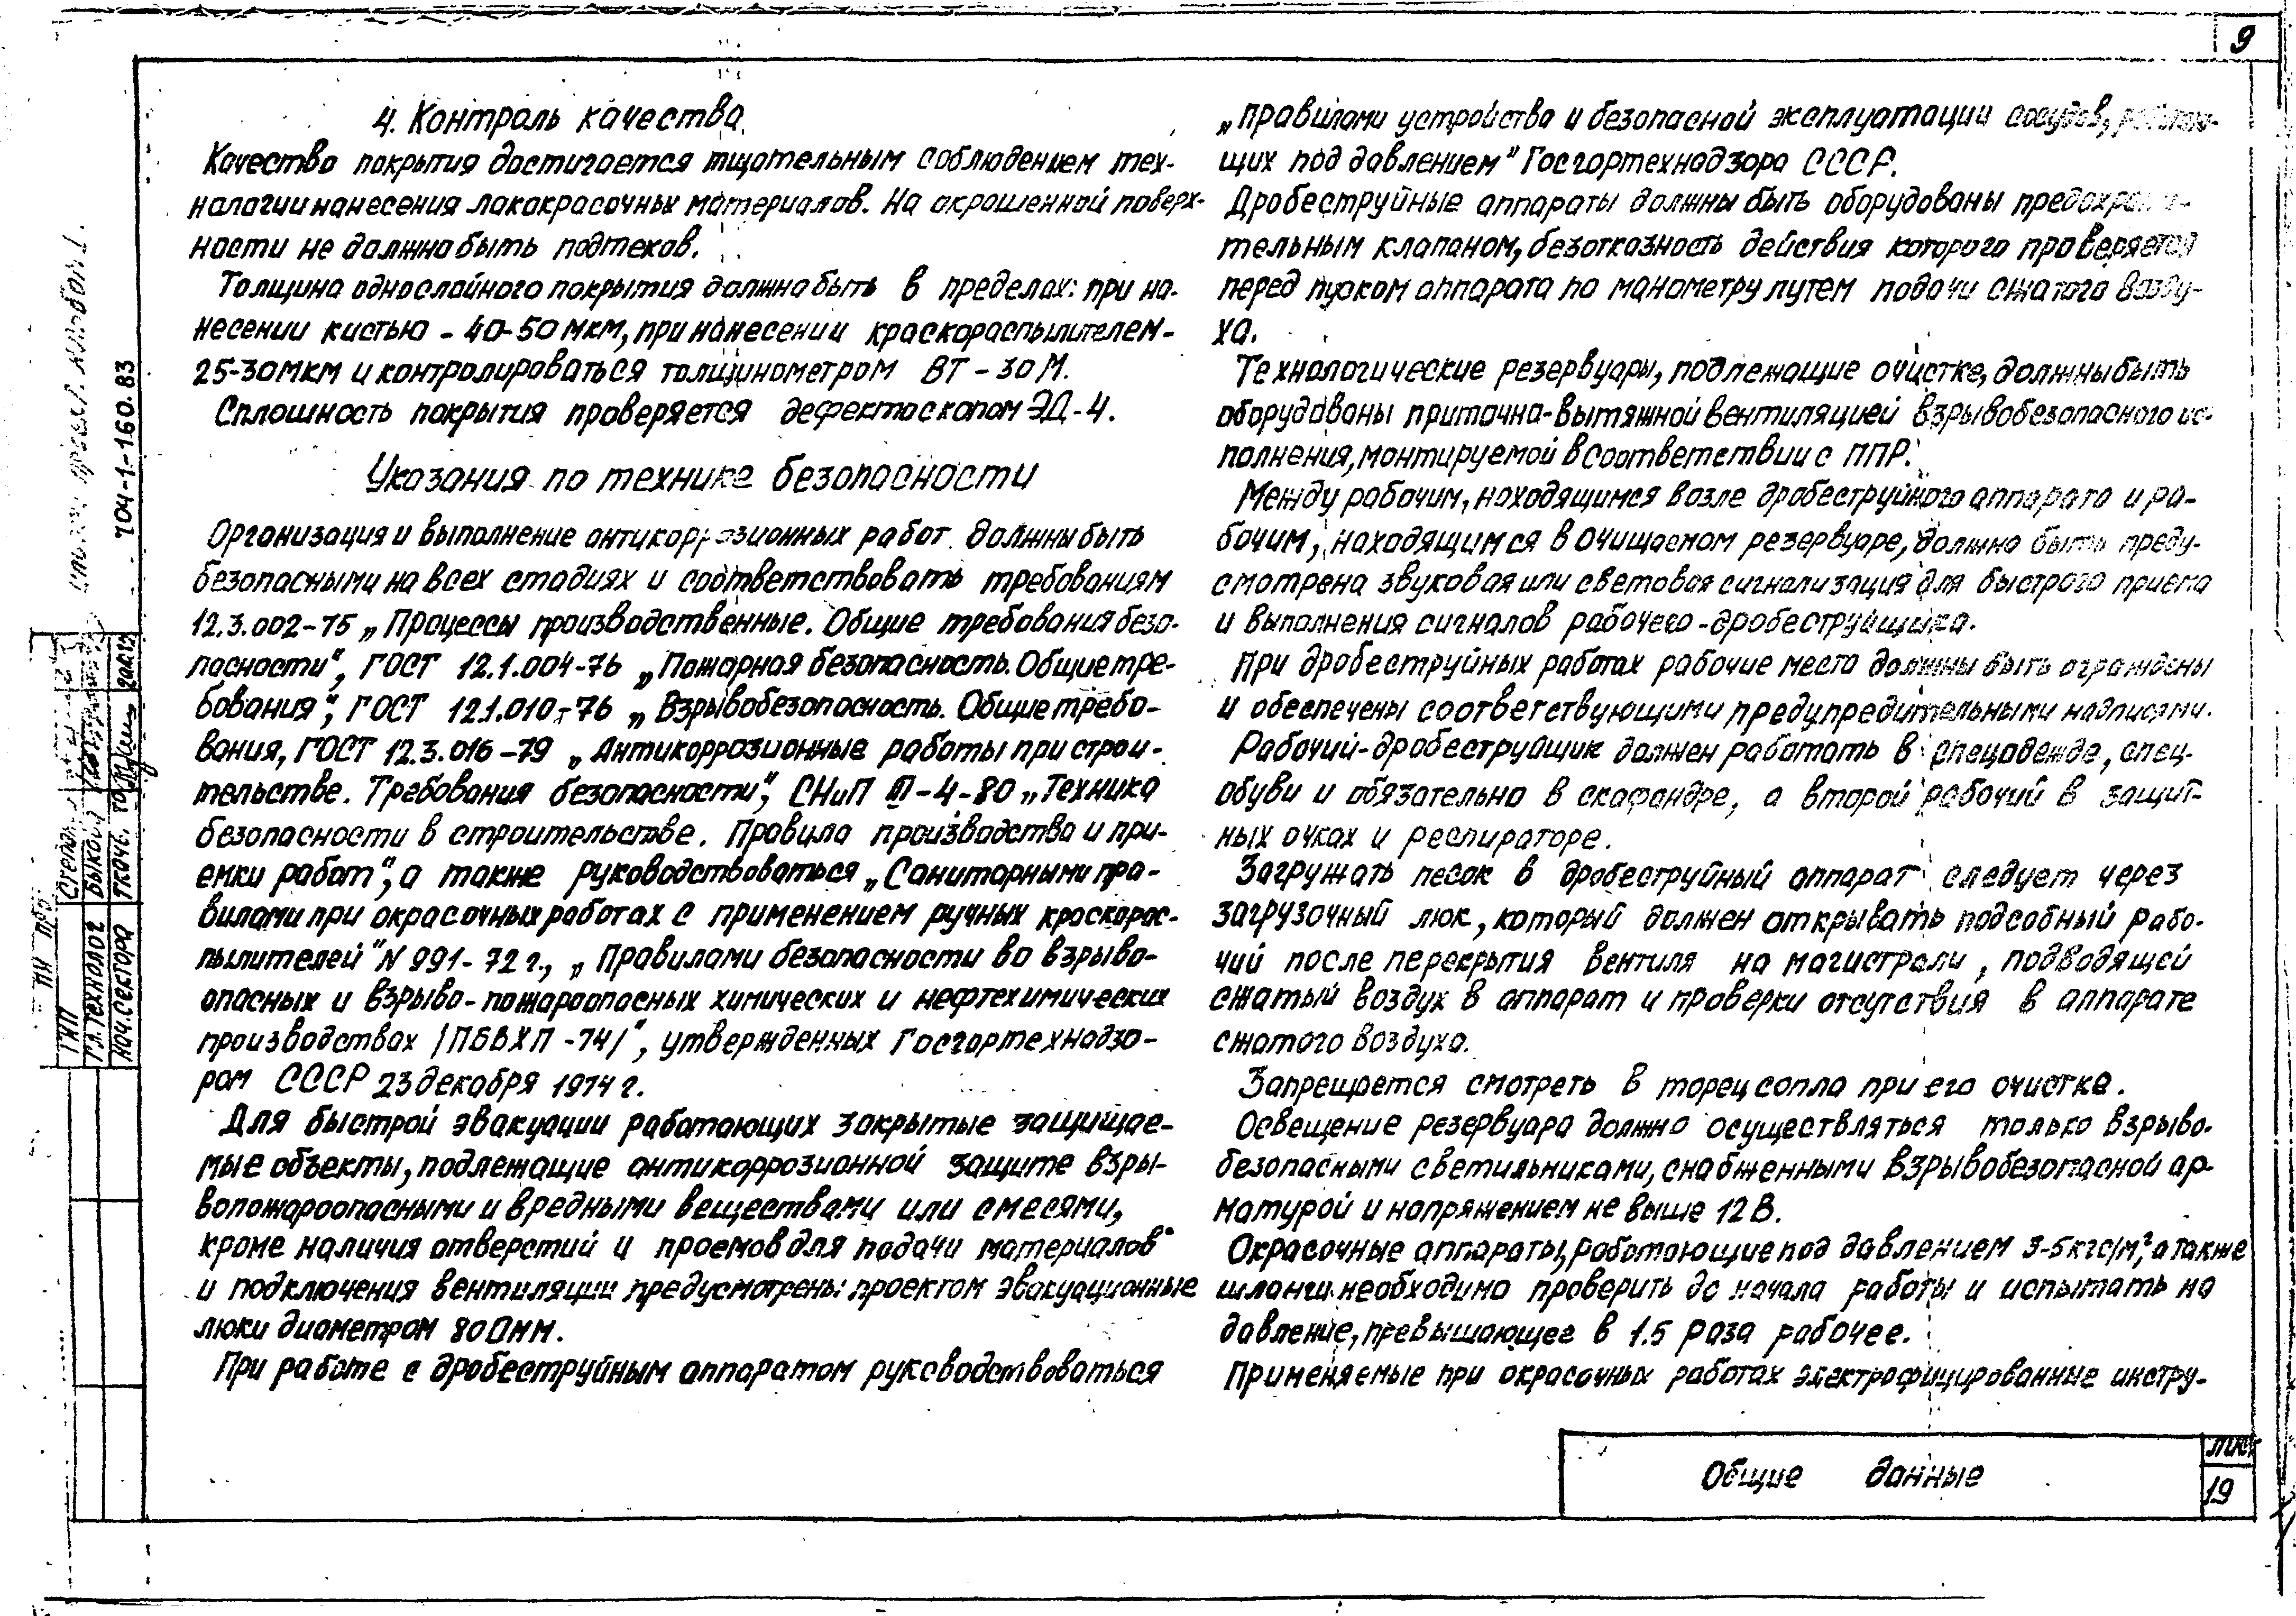 9
4. Контроль качества.
Качество покрытия достигается тщательным соблюдением тех-
нологии нанесения лакокрасочных материалов. На окрашенной поверх-
ности не должно быть подтеков.
Толщина однослойного покрытия должна быть в пределах: при на-
несении кистью - 40-50 мкм, при нанесении краскораспылителем -
25-30 мкм и контролироваться толщинометром ВТ - 30 М.
Сплошность покрытия проверяется дефектоскопом ЭД-4.
Указания по технике безопасности
Организация и выполнение антикоррозионных работ должны быть
безопасными на всех стадиях и соответствовать требованиям
12.3.002-75 „Процессы производственные. Общие требования безо-
пасности", ГОСТ 12.1.004-76 „Пожарная безопасность. Общие тре-
бования", ГОСТ 12.1.010-76 „Взрывобезопасность. Общие требо-
вания, ГОСТ 12.3.016-79 „Антикоррозионные работы при строи-
тельстве. Требования безопасности", СНиП III-4-80 „Техника
безопасности в строительстве. Правила производства и при-
емки работ", а также руководствоваться „Санитарными пра-
вилами при окрасочных работах с применением ручных краскорас-
пылителей" N 991-72 г., „Правилами безопасности во взрыво-
опасных и взрыво-пожароопасных химических и нефтехимических
производствах /ПБВХП-74/", утвержденных Госгортехнадзо-
ром СССР 23 декабря 1974 г.
Для быстрой эвакуации работающих закрытые защищае-
мые объекты, подлежащие антикоррозионной защите взры-
вопожароопасными и вредными веществами или смесями,
кроме наличия отверстий и проемов для подачи материалов
и подключения вентиляции предусмотрены проектом эвакуационные
люки диаметром 800мм.
При работе с дробеструйным аппаратом руководствоваться
„правилами устройства и безопасной эксплуатации сосудов, работаю-
щих под давлением" Госгортехнадзора СССР.
Дробеструйные аппараты должны быть оборудованы предохрани-
тельным клапаном, безотказность действия которого проверяется
перед пуском аппарата по манометру путем подачи сжатого возду-
ха.
Технологические резервуары, подлежащие очистке, должны быть
оборудованы приточно-вытяжной вентиляцией взрывобезопасного ис-
полнения, монтируемой в соответствии с ППР.
Между рабочим, находящимся возле дробеструйного аппарата и ра-
бочим, находящимся в очищаемом резервуаре, должна быть преду-
смотрена звуковая или световая сигнализация для быстрого приема
и выполнения сигналов рабочего-дробеструйщика.
При дробеструйных работах рабочие места должны быть ограждены
и обеспечены соответствующими предупредительными надписями.
Рабочий-дробеструйщик должен работать в спецодежде, спец-
обуви и обязательно в скафандре, а второй рабочий в защит-
ных очках и респираторе.
Загружать песок в дробеструйный аппарат следует через
загрузочный люк, который должен открывать подсобный рабо-
чий после перекрытия вентиля на магистрали, подводящей
сжатый воздух в аппарат и проверки отсутствия в аппарате
сжатого воздуха.
Запрещается смотреть в торец сопла при его очистке.
Освещение резервуара должно осуществляться только взрыво-
безопасными светильниками, снабженными взрывобезопасной ар-
матурой и напряжением не выше 12 В.
Окрасочные аппараты, работающие под давлением 3-5 кгс/м², а также
шланги необходимо проверить до начала работы и испытать на
давление, превышающее в 1.5 раза рабочее.
Применяемые при окрасочных работах электрофицированные инстру-
Общие данные
лист
19
704-1-160.83
ГИП
Гл. технолог
Нач. сектора